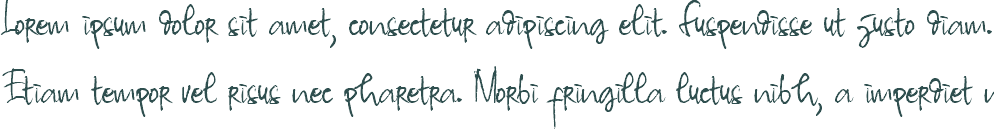 Lorem ipsum dolor sit amet, consectetur adipiscing elit. Suspendisse ut justo diam.
Etiam tempor vel risus nec pharetra. Morbi fringilla luctus nibh, a imperdiet